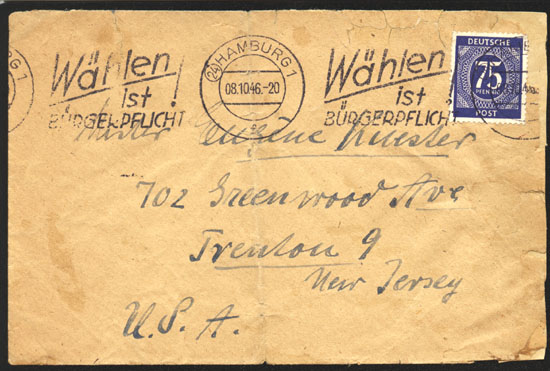 Wählen ist BÜRGERPFLICHT!
(24) HAMBURG 1
08.10.46.-20
Wählen ist BÜRGERPFLICHT
DEUTSCHE
75
PFENNIG
POST
702 Greenwood Ave
Trenton 9
New Jersey
U.S.A.